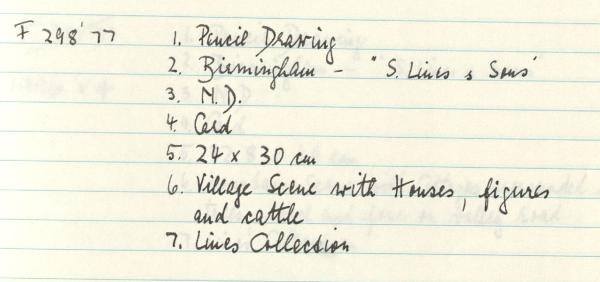 F 298'77 1. Pencil Drawing
2. Birmingham - "S. Lines & Sons"
3. N.D.
4. Card
5. 24 x 30 cm
6. Village Scene with Houses, figures
and cattle
7. Lines Collection